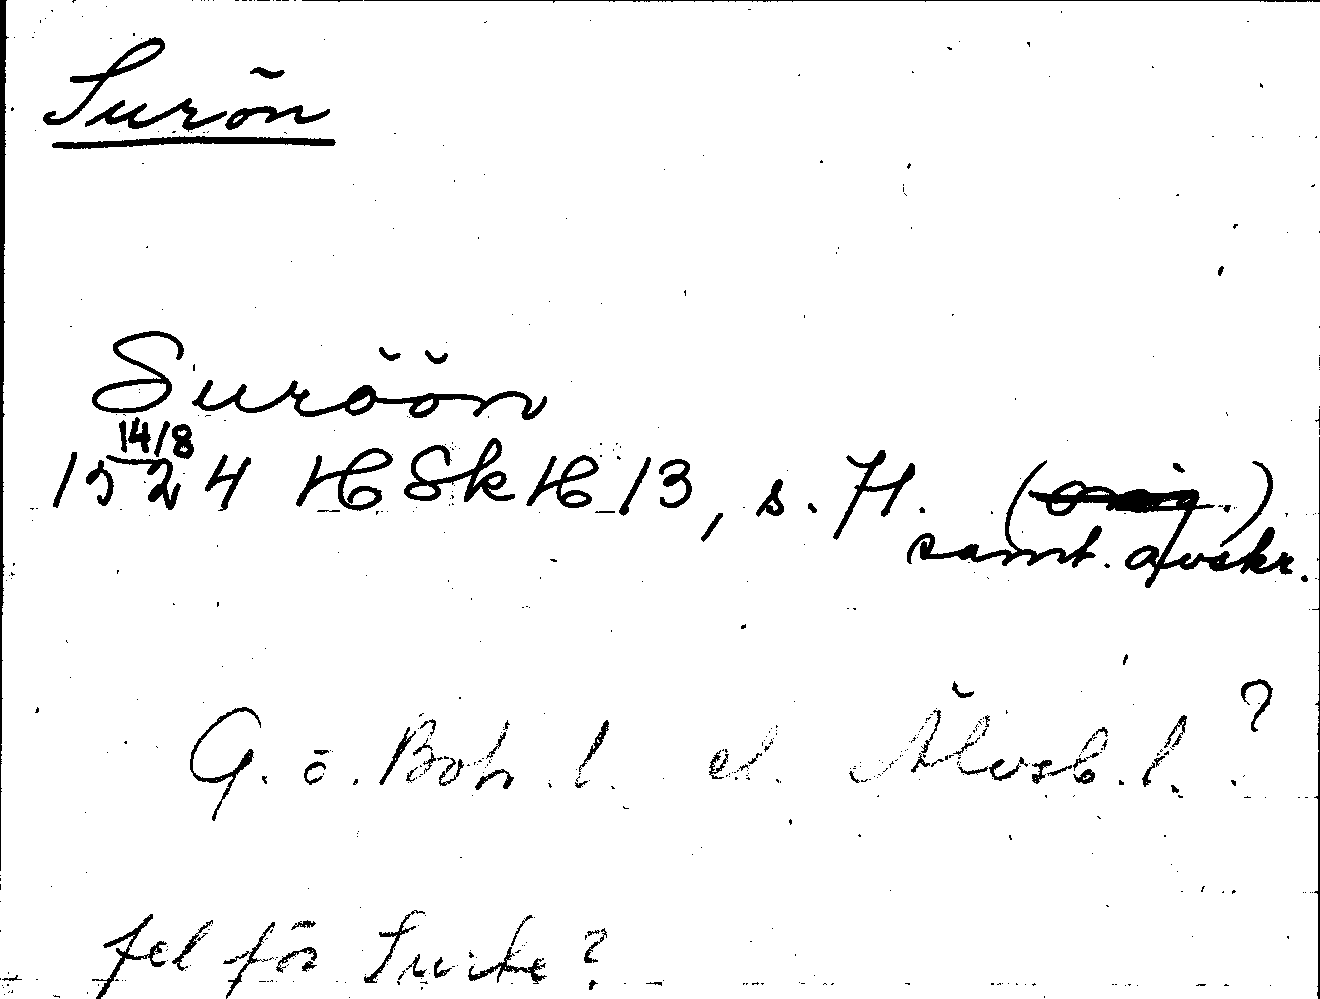 Surön
Suröön
14/8
1524 HSkH 13, s. 71. (orig.)
samt. avskr.
G. o. Boh. l. el. Älvsb. l.?
fel för Surte?